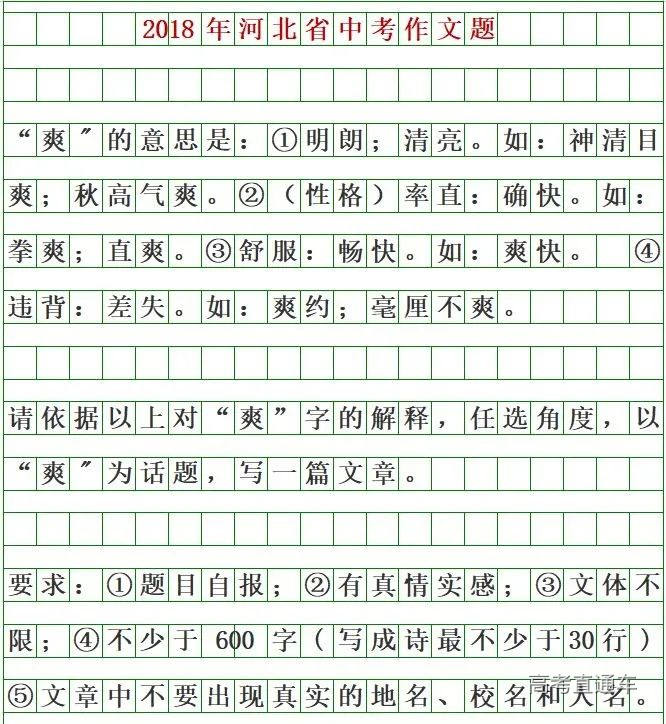 2018年河北省中考作文题
“爽〞的意思是：①明朗；清亮。如：神清目
爽；秋高气爽。②（性格）率直：确快。如：
拳爽；直爽。③舒服：畅快。如：爽快。 ④
违背：差失。如：爽约；毫厘不爽。
请依据以上对“爽”字的解释，任选角度，以
“爽〞为话题，写一篇文章。
要求：①题目自报；②有真情实感；③文体不
限；④不少于 600 字（写成诗最不少于30行）
⑤文章中不要出现真实的地名、校名和人名。
高考直通车